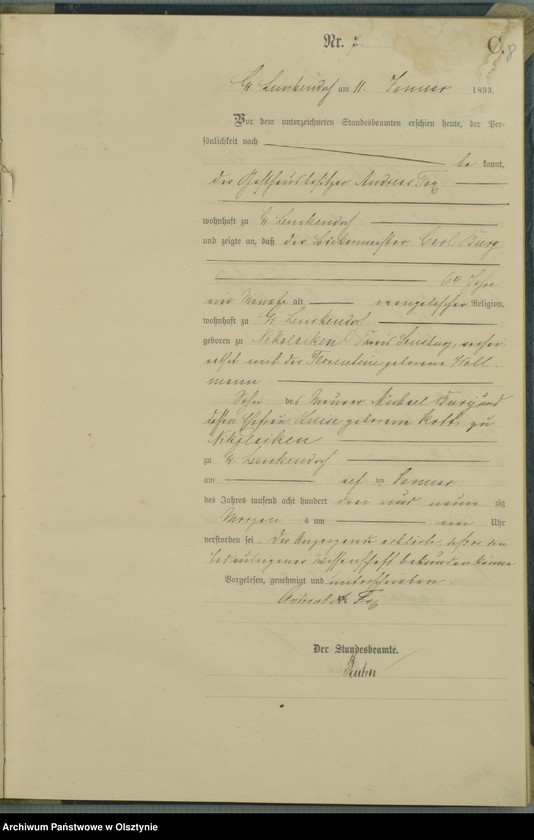 Nr. 7
C.
8
Gr. Lenkendorf am 11. Januar 1893.
Vor dem unterzeichneten Standesbeamten erschien heute, der Per-
sönlichkeit nach
be kannt,
der Gasthausbesitzer Andreas Fox
wohnhaft zu Gr. Lenkendorf
und zeigte an, daß der Bäckermeister Carl Burg
64 Jahre
vier Monate alt evangelischer Religion,
wohnhaft zu Gr. Lenkendorf
geboren zu Nikolaiken Kreis Sensburg, verhei-
rathet mit der Florentine geborene Woll-
mann
Sohn des Maurer Michael Burg und
dessen Ehefrau Luise geborene zu
Nikolaiken
zu Gr. Lenkendorf
am elf ten Januar
des Jahres tausend acht hundert drei und neun zig
Morgens um Uhr
verstorben sei. Der Anzeigende erklärte,
Wissenschaft
Vorgelesen, genehmigt und unterschrieben
Andreas Fox
Der Standesbeamte.
Archiwum Państwowe w Olsztynie